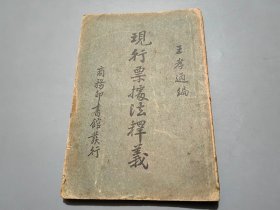 王孝通編
現行票據法釋義
商務印書館發行